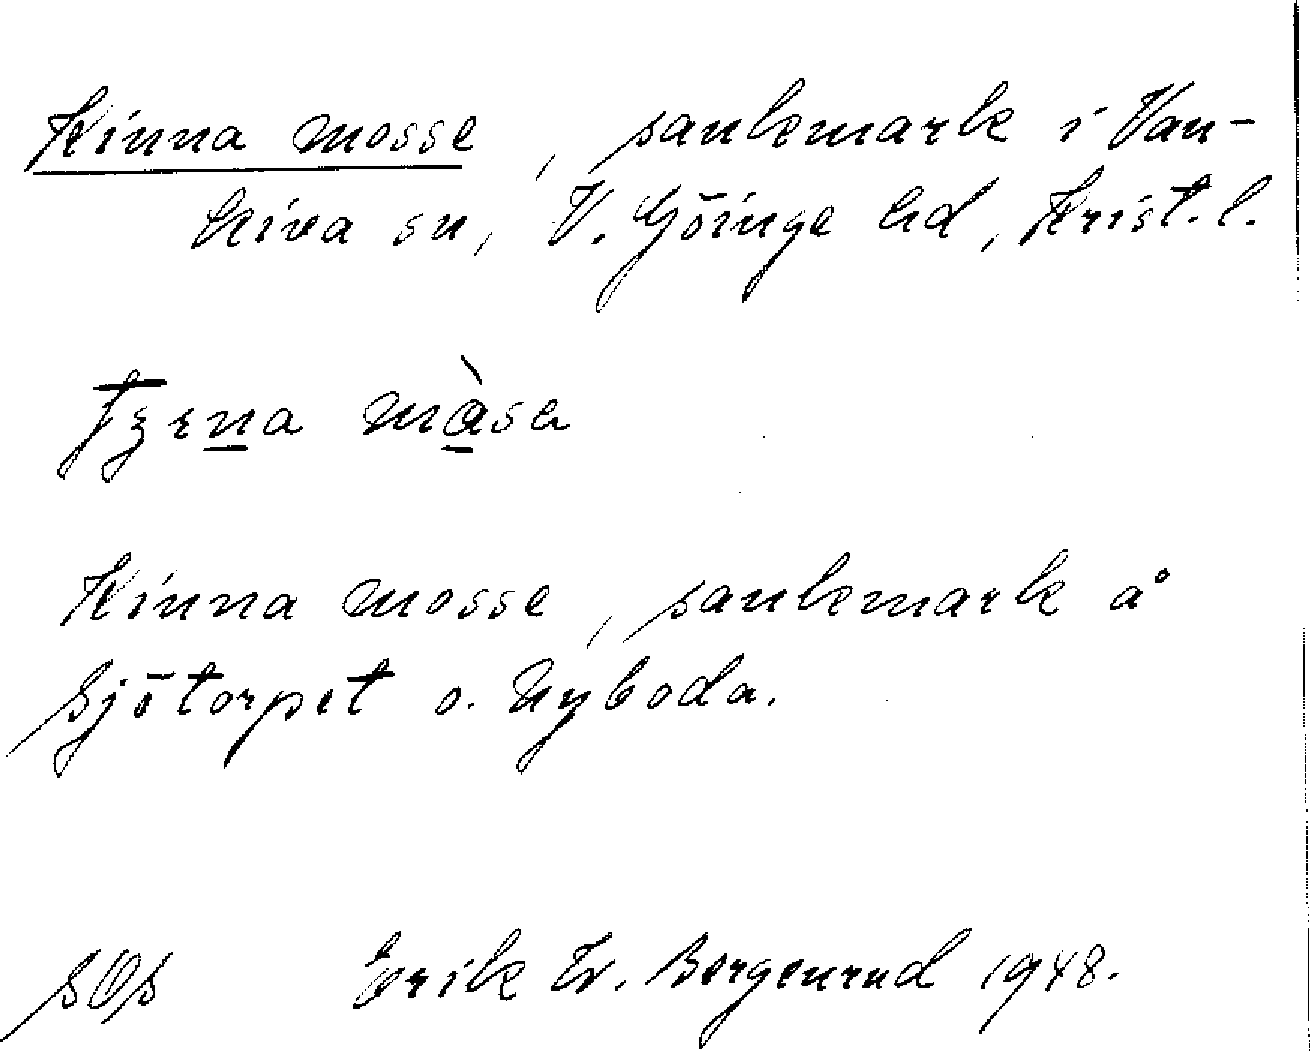 Kinna mosse, sankmark i Van-
kiva sn, V. Göinge hd, Krist. l.
màsa
Kinna mosse, sankmark å
Sjötorpet o. Nyboda.
SOS Erik W. Bergenrud 1948.